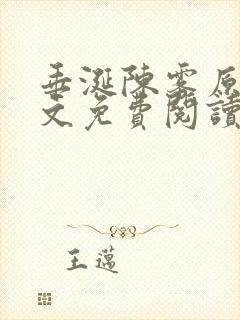 垂涎陳雾原
文免費閱讀
王邁